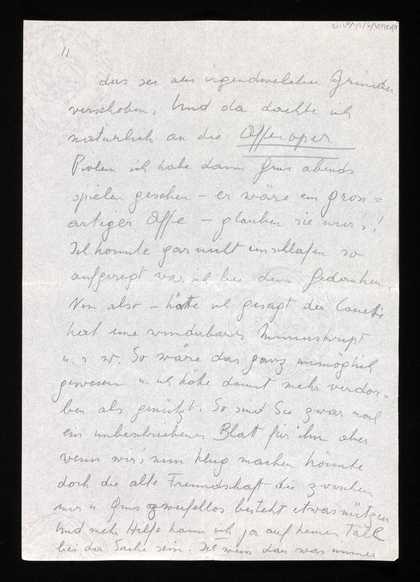 11
das sei aus irgendwelchen Gründen
verschoben. Und da dachte ich
natürlich an die Affenoper
ich habe dann Gms abends
spielen gesehen – er wäre ein gross=
artiger Affe – glauben sie mir!
Ich konnte gar nicht einschlafen so
aufgeregt war ich bei dem Gedanken
Nun also – hätte ich gesagt der Canetti
hat eine wunderbares Manuskript
u. s. w. So wäre das ganz unmöglich
gewesen u. ich hätte damit mehr verdor-
ben als genützt. So sind Sie zwar noch
ein unbeschriebenes Blatt für ihn aber
wenn wir's nun klug machen könnte
doch die alte Freundschaft die zwischen
mir u. Gms zweifellos besteht etwas nützen
Und mehr Hilfe kann ich ja auf keinen Fall
bei der Sache sein. Ich mein das was immer